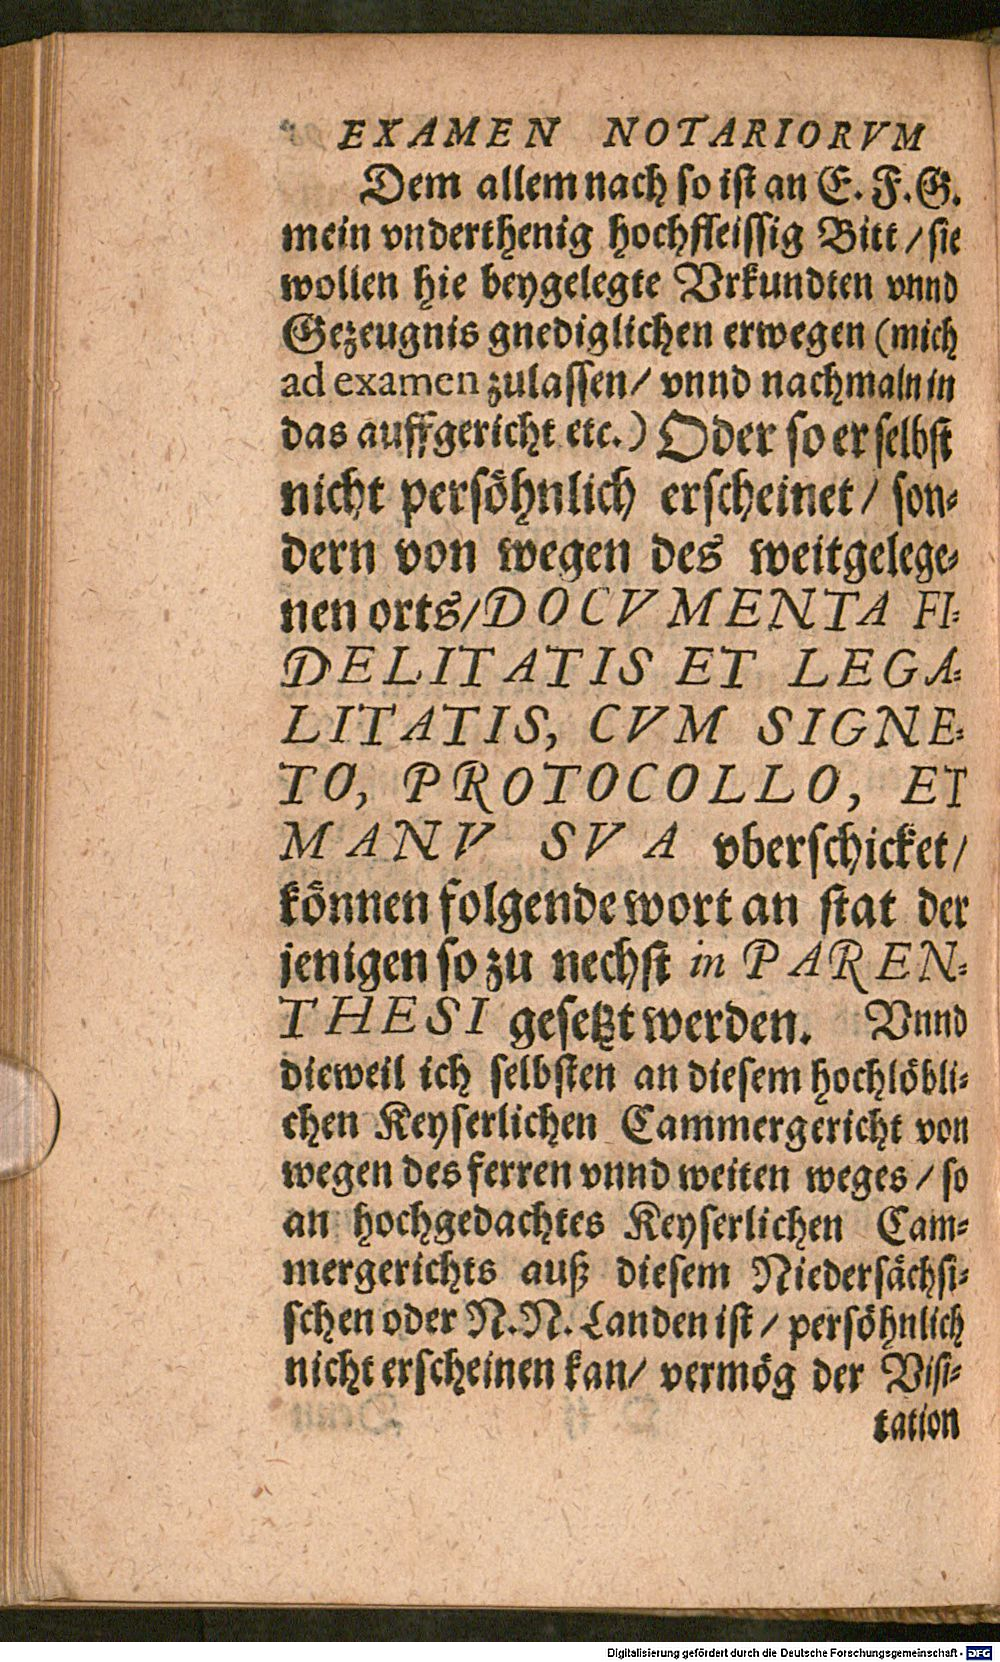 EXAMEN NOTARIORVM
Dem allem nach so ist an E. F. G.
mein vnderthenig hochfleissig Bitt / sie
wollen hie beygelegte Vrkundten vnnd
Gezeugnis gnediglichen erwegen (mich
ad examen zulassen / vnnd nachmaln in
das auffgericht etc.) Oder so er selbst
nicht persöhnlich erscheinet / son-
dern von wegen des weitgelege-
nen orts / DOCVMENTA FI-
DELITATIS ET LEGA-
LITATIS, CVM SIGNE-
TO, PROTOCOLLO, ET
MANV SVA vberschicket /
können folgende wort an stat der
jenigen so zu nechst in PAREN-
THESI gesetzt werden. Vnnd
dieweil ich selbsten an diesem hochlöbli-
chen Keyserlichen Cammergericht von
wegen des ferren vnnd weiten weges / so
an hochgedachtes Keyserlichen Cam-
mergerichts auß diesem Niedersächsi-
schen oder N. N. Landen ist / persöhnlich
nicht erscheinen kan / vermög der Visi-
tation
Digitalisierung gefördert durch die Deutsche Forschungsgemeinschaft - DFG